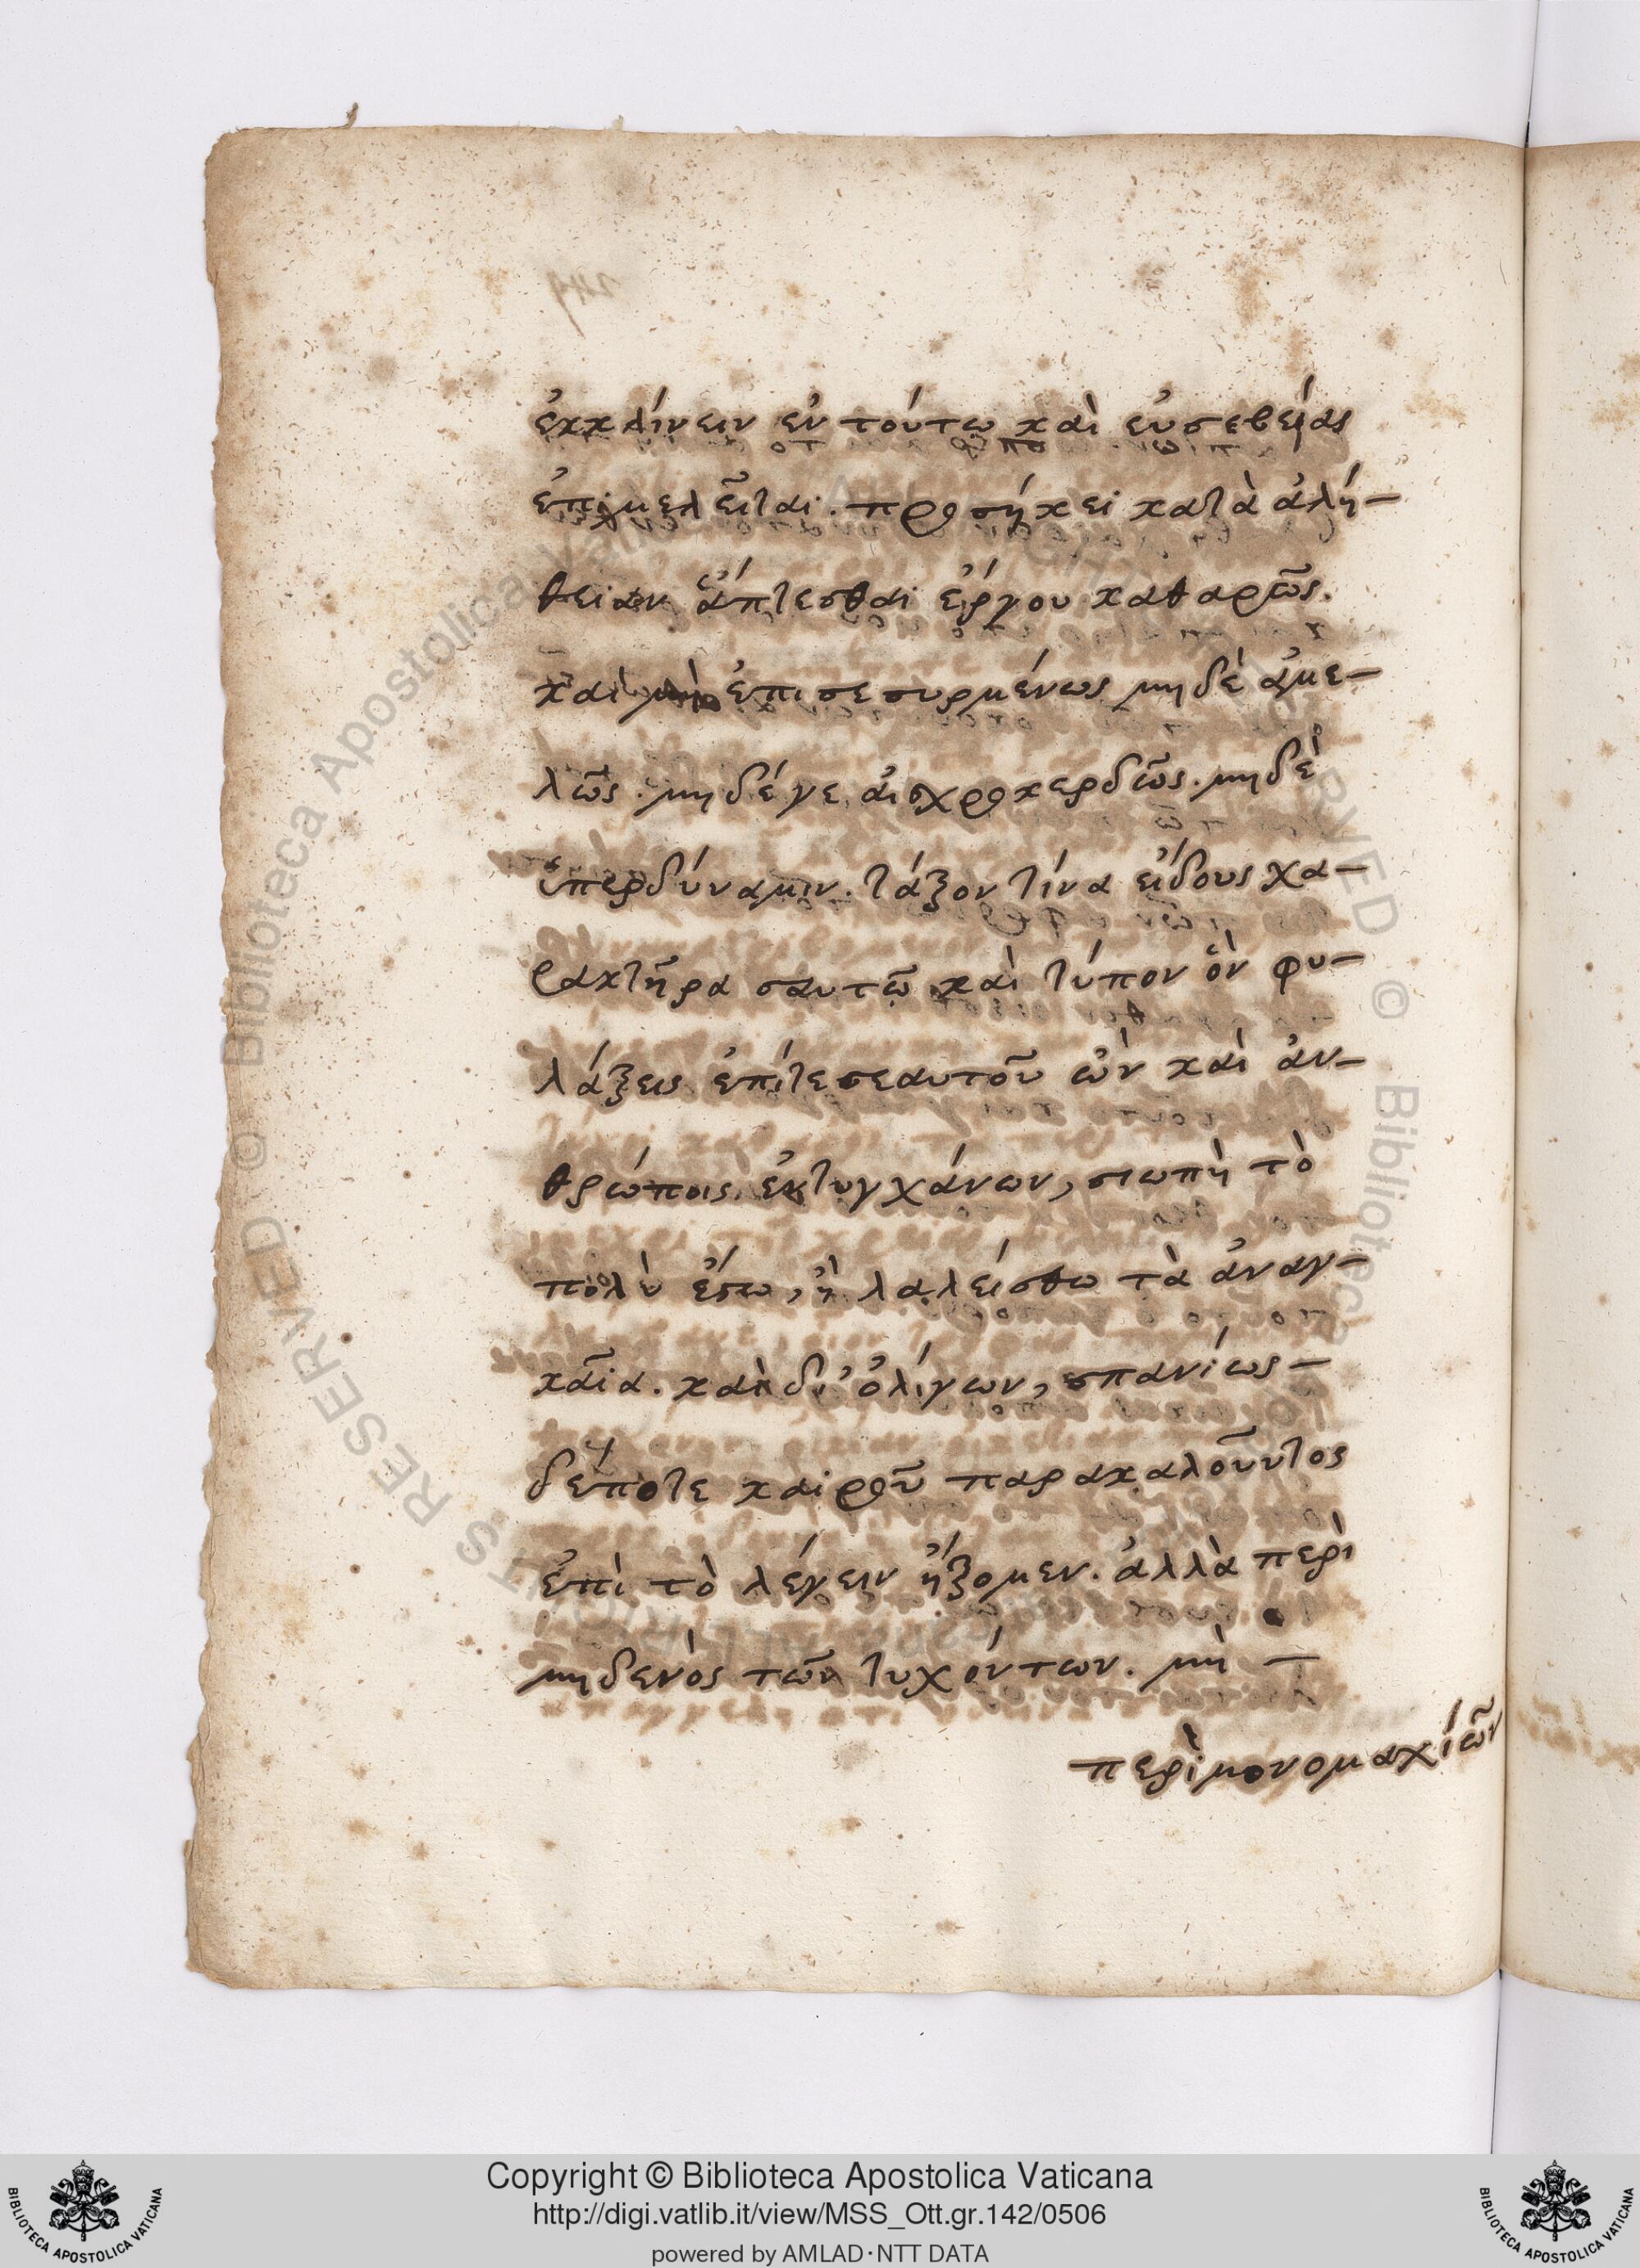 ἐκκλίνειν ἐν τούτω καὶ εὐσεβείας
ἐπιμελεῖται. προσήκει κατὰ ἀλή-
θειαν ἅπτεσθαι ἔργου καθαρῶς.
καὶ μὴ ἐπισεσυρμένως μηδὲ ἀμε-
λῶς. μηδέγε αἰσχροκερδῶς. μηδὲ
ὑπερδύναμιν. τάξον τίνα εἴδους χα-
ρακτῆρα σαυτῶ καὶ τύπον ὃν φυ-
λάξεις ἐπίτε σεαυτοῦ ὢν καὶ ἀν-
θρώποις ἐντυγχάνων, σιωπὴ τὸ
πολὺ ἔστω, ἢ λαλείσθω τὰ ἀναγ-
καῖα. καὶ δι' ὀλίγων, σπανίως-
δέποτε καιροῦ παρακαλοῦντος
ἐπὶ τὸ λέγειν ἥξομεν. ἀλλὰ περὶ
μηδενὸς τῶν τυχόντων. μὴ -
περὶ μονομαχίῶν
Copyright © Biblioteca Apostolica Vaticana
http://digi.vatlib.it/view/MSS_Ott.gr.142/0506
powered by AMLAD·NTT DATA
BIBLIOTECA APOSTOLICA VATICANA
BIBLIOTECA APOSTOLICA VATICANA